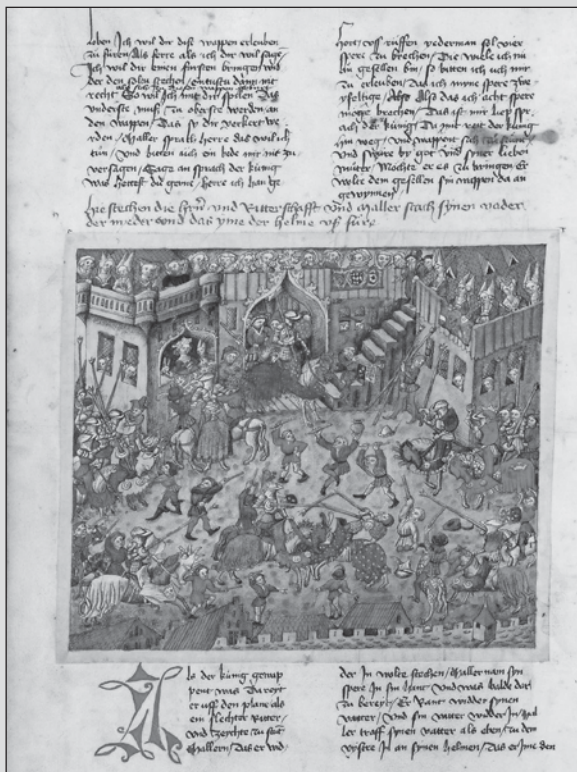 loben Ich wil dir disz wappen erleuben
zu füren / Als ferre als ich dir wil sage
Ich wil dir einen fursten bringen wid
der den soltu stechen / Entustu dann nit
recht So wil ich mit dir spilen Das
vnderste musz zu oberste werden an
den wappen / Das sy dir verkert we
rden / Maller sprach herre das wil ich
tün / Vnd bitten auch ein bede mir nit zu
versagen / Sage an sprach der künig
was hettest du gerne / herre ich han ge
hort / vsz rüffen yederman sol vier
spere zu brechen / Die wiele ich nü
ein geselle bin / so bitten ich uch mir
zu erleuben / Das ich myne spere zwe
yfeltige / Also das ich acht spere
moge brechen / Das ist mir liep spr
ach der künig / Da mit reit der künig
hin weg / Vnd wappent sich zu stunt
Vnd swure by got vnd syner lieben
müter / Mochte er es zu bringen Er
wolte dem gesellen sin wappen da an
gewynnen /
Hie stechen die hern vnd Ritterschafft Vnd Maller stach synen vader
der nieder vnd das yme der helme vsz füre
Als der künig gewap
pent was Da reyt
er vff den plane als
ein slechter ritter /
vnd zerchte zu stüt
Mallern / Das er wo
der In wolte stechen / Maller nam syn
spere In sin hant Vnd was balde dar
zu bereyt / Er Rant widder synen
vatter / Vnd sin vatter widder In / Mal
ler traff synen vatter als eben / zu dem
vysire In an synen helmen / Das er ime den